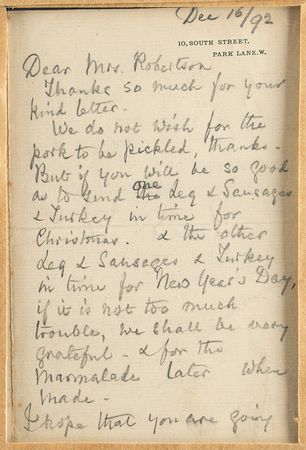 Dec 16/92
10, SOUTH STREET,
PARK LANE. W.
Dear Mrs. Robertson
Thanks so much for your
kind letter -
We do not wish for the
pork to be pickled, thanks -
But if you will be so good
as to send one Leg & Sausages
& Turkey in time for
Christmas. & the other
Leg & Sausages & Turkey
in time for New Year's Day,
if it is not too much
trouble, we shall be very
grateful - & for the
Marmalade later when
made -
I hope that you are going